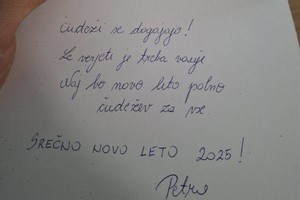 Čudeži se dogajajo!
Le verjeti je treba vanje
Naj bo novo leto polno
čudežev za vse
SREČNO NOVO LETO 2025!
Petra